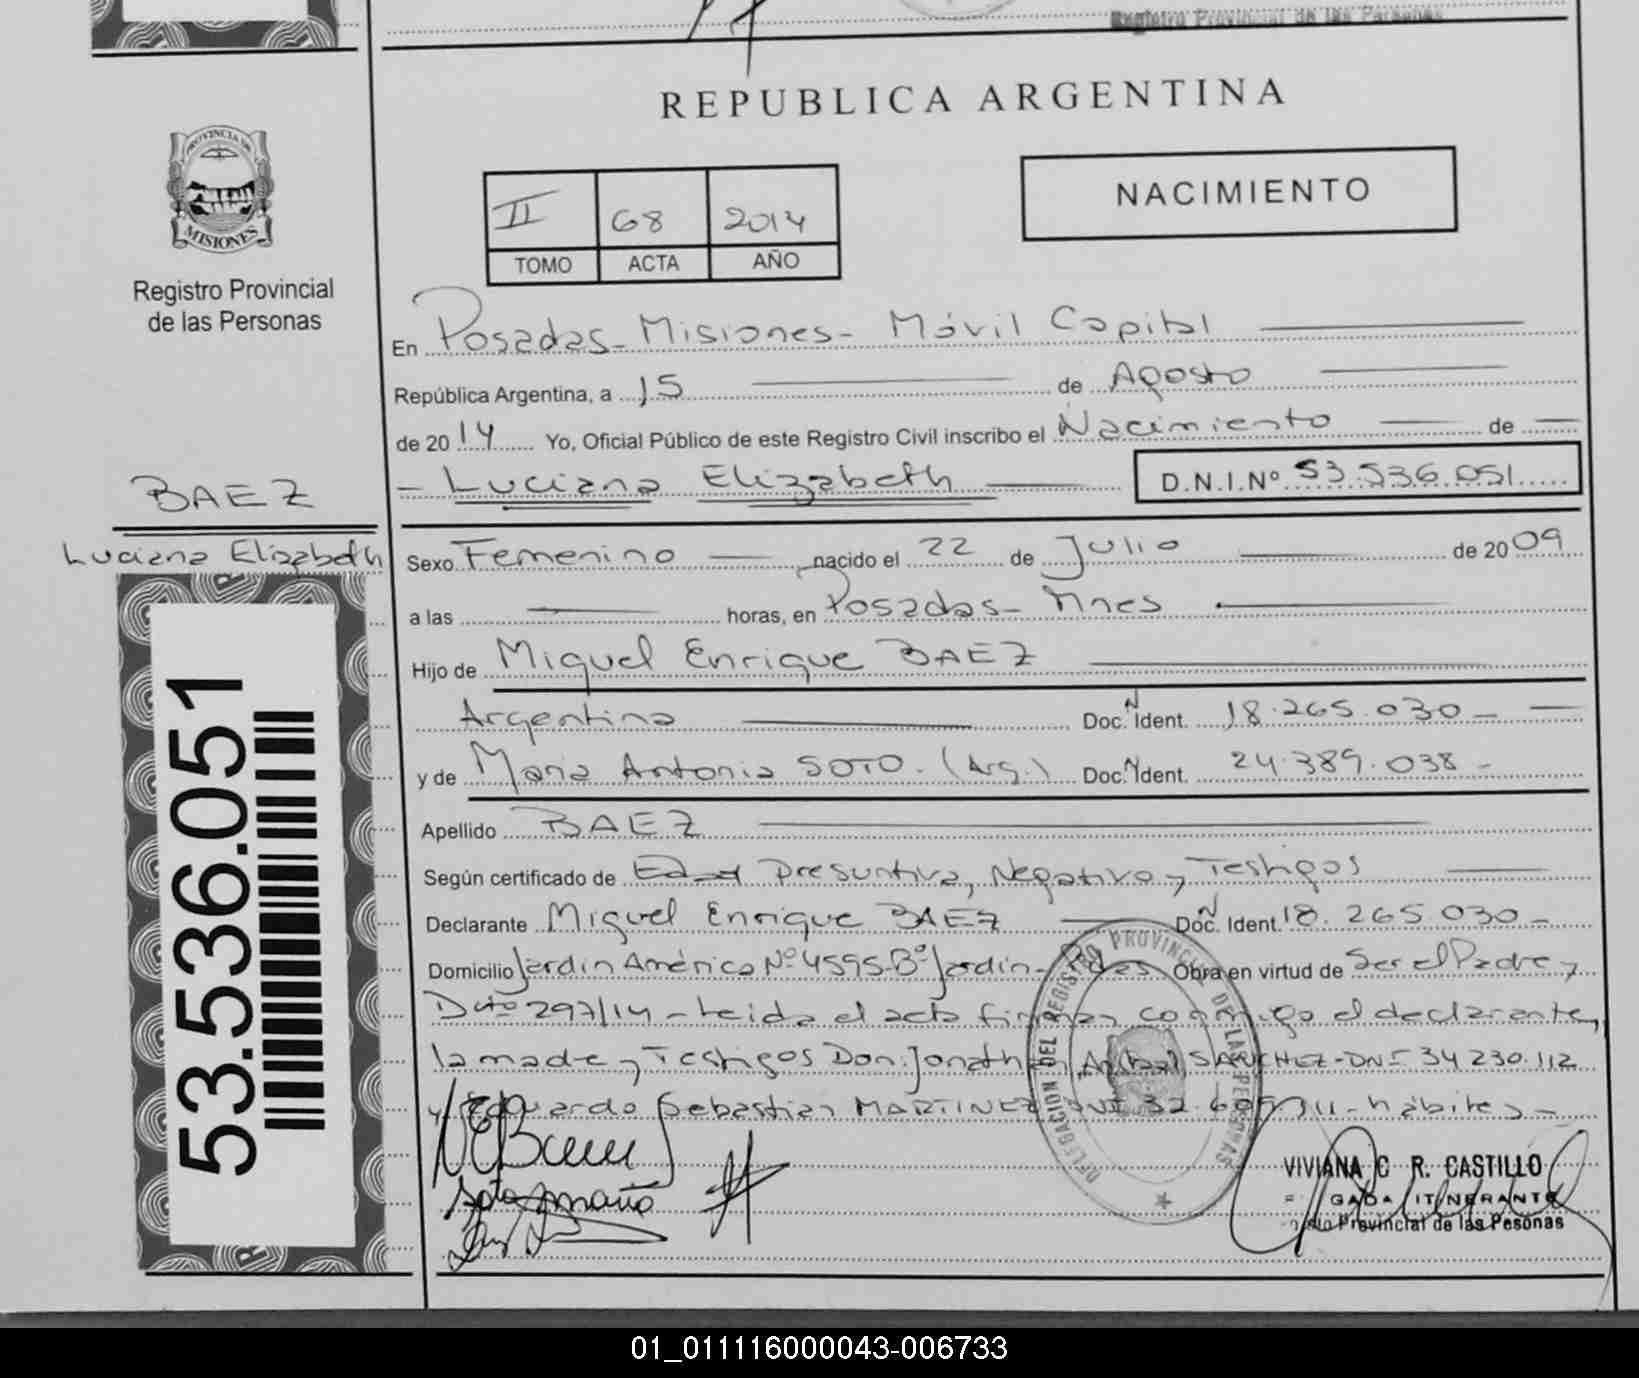 Registro Provincial de las Personas
REPUBLICA ARGENTINA
PROVINCIA DE
MISIONES
Registro Provincial
de las Personas
II 68 2014
TOMO ACTA AÑO
NACIMIENTO
En Posadas - Misiones - Móvil Capital
República Argentina, a 15 de Agosto
de 2014 Yo, Oficial Público de este Registro Civil inscribo el Nacimiento de
- Luciana Elizabeth D.N.I.Nº 53.536.051
BAEZ
Luciana Elizabeth
Sexo Femenino nacido el 22 de Julio de 2009
a las horas, en Posadas - Mnes
Hijo de Miguel Enrique BAEZ
Argentina Doc. N Ident. 18.265.030 -
y de Maria Antonia SOTO. (Arg.) Doc. N Ident. 24.389.038 -
Apellido BAEZ
Según certificado de Edad Presuntiva, Negativo y Testigos
Declarante Miguel Enrique BAEZ Doc. N Ident. 18.265.030 -
Domicilio Jardin América Nº 4595-Bº Jardin - Pdas Obra en virtud de Ser el Padre y
Dcto 297/14 - Leida el acta firman conmigo el declarante,
la madre y Testigos Don: Jonathan Anibal SANCHEZ - DNI 34.230.112
y Eduardo Sebastian MARTINEZ DNI 32. - habites -
53.536.051
DELEGACION DEL REGISTRO PROVINCIAL DE LAS PERSONAS
Soto Maria
VIVIANA C R. CASTILLO
GADA ITINERANTE
Provincial de las Pesonas
01_011116000043-006733